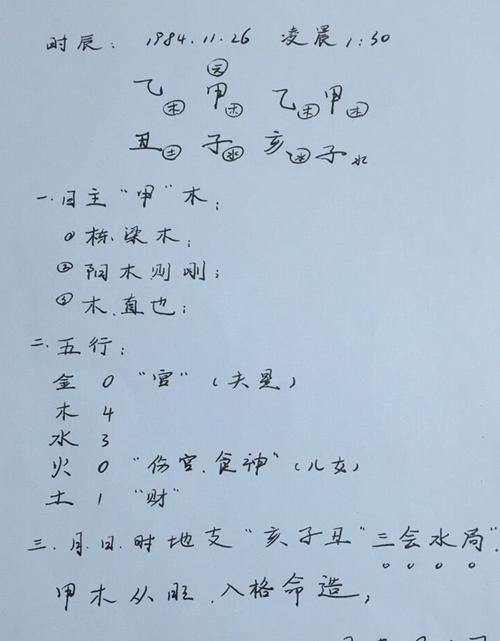 时辰： 1984.11.26 凌晨 1:30
元
乙木 甲木 乙木 甲木
丑土 子水 亥水 子水
一.日主“甲”木；
①栋梁木；
②阳木则刚；
③木.直也；
二.五行：
金 0 “官”（夫星）
木 4
水 3
火 0 “伤官.食神”（儿女）
土 1 “财”
三.月.日.时地支“亥子丑”三会水局”.
甲木从旺.入格命造，